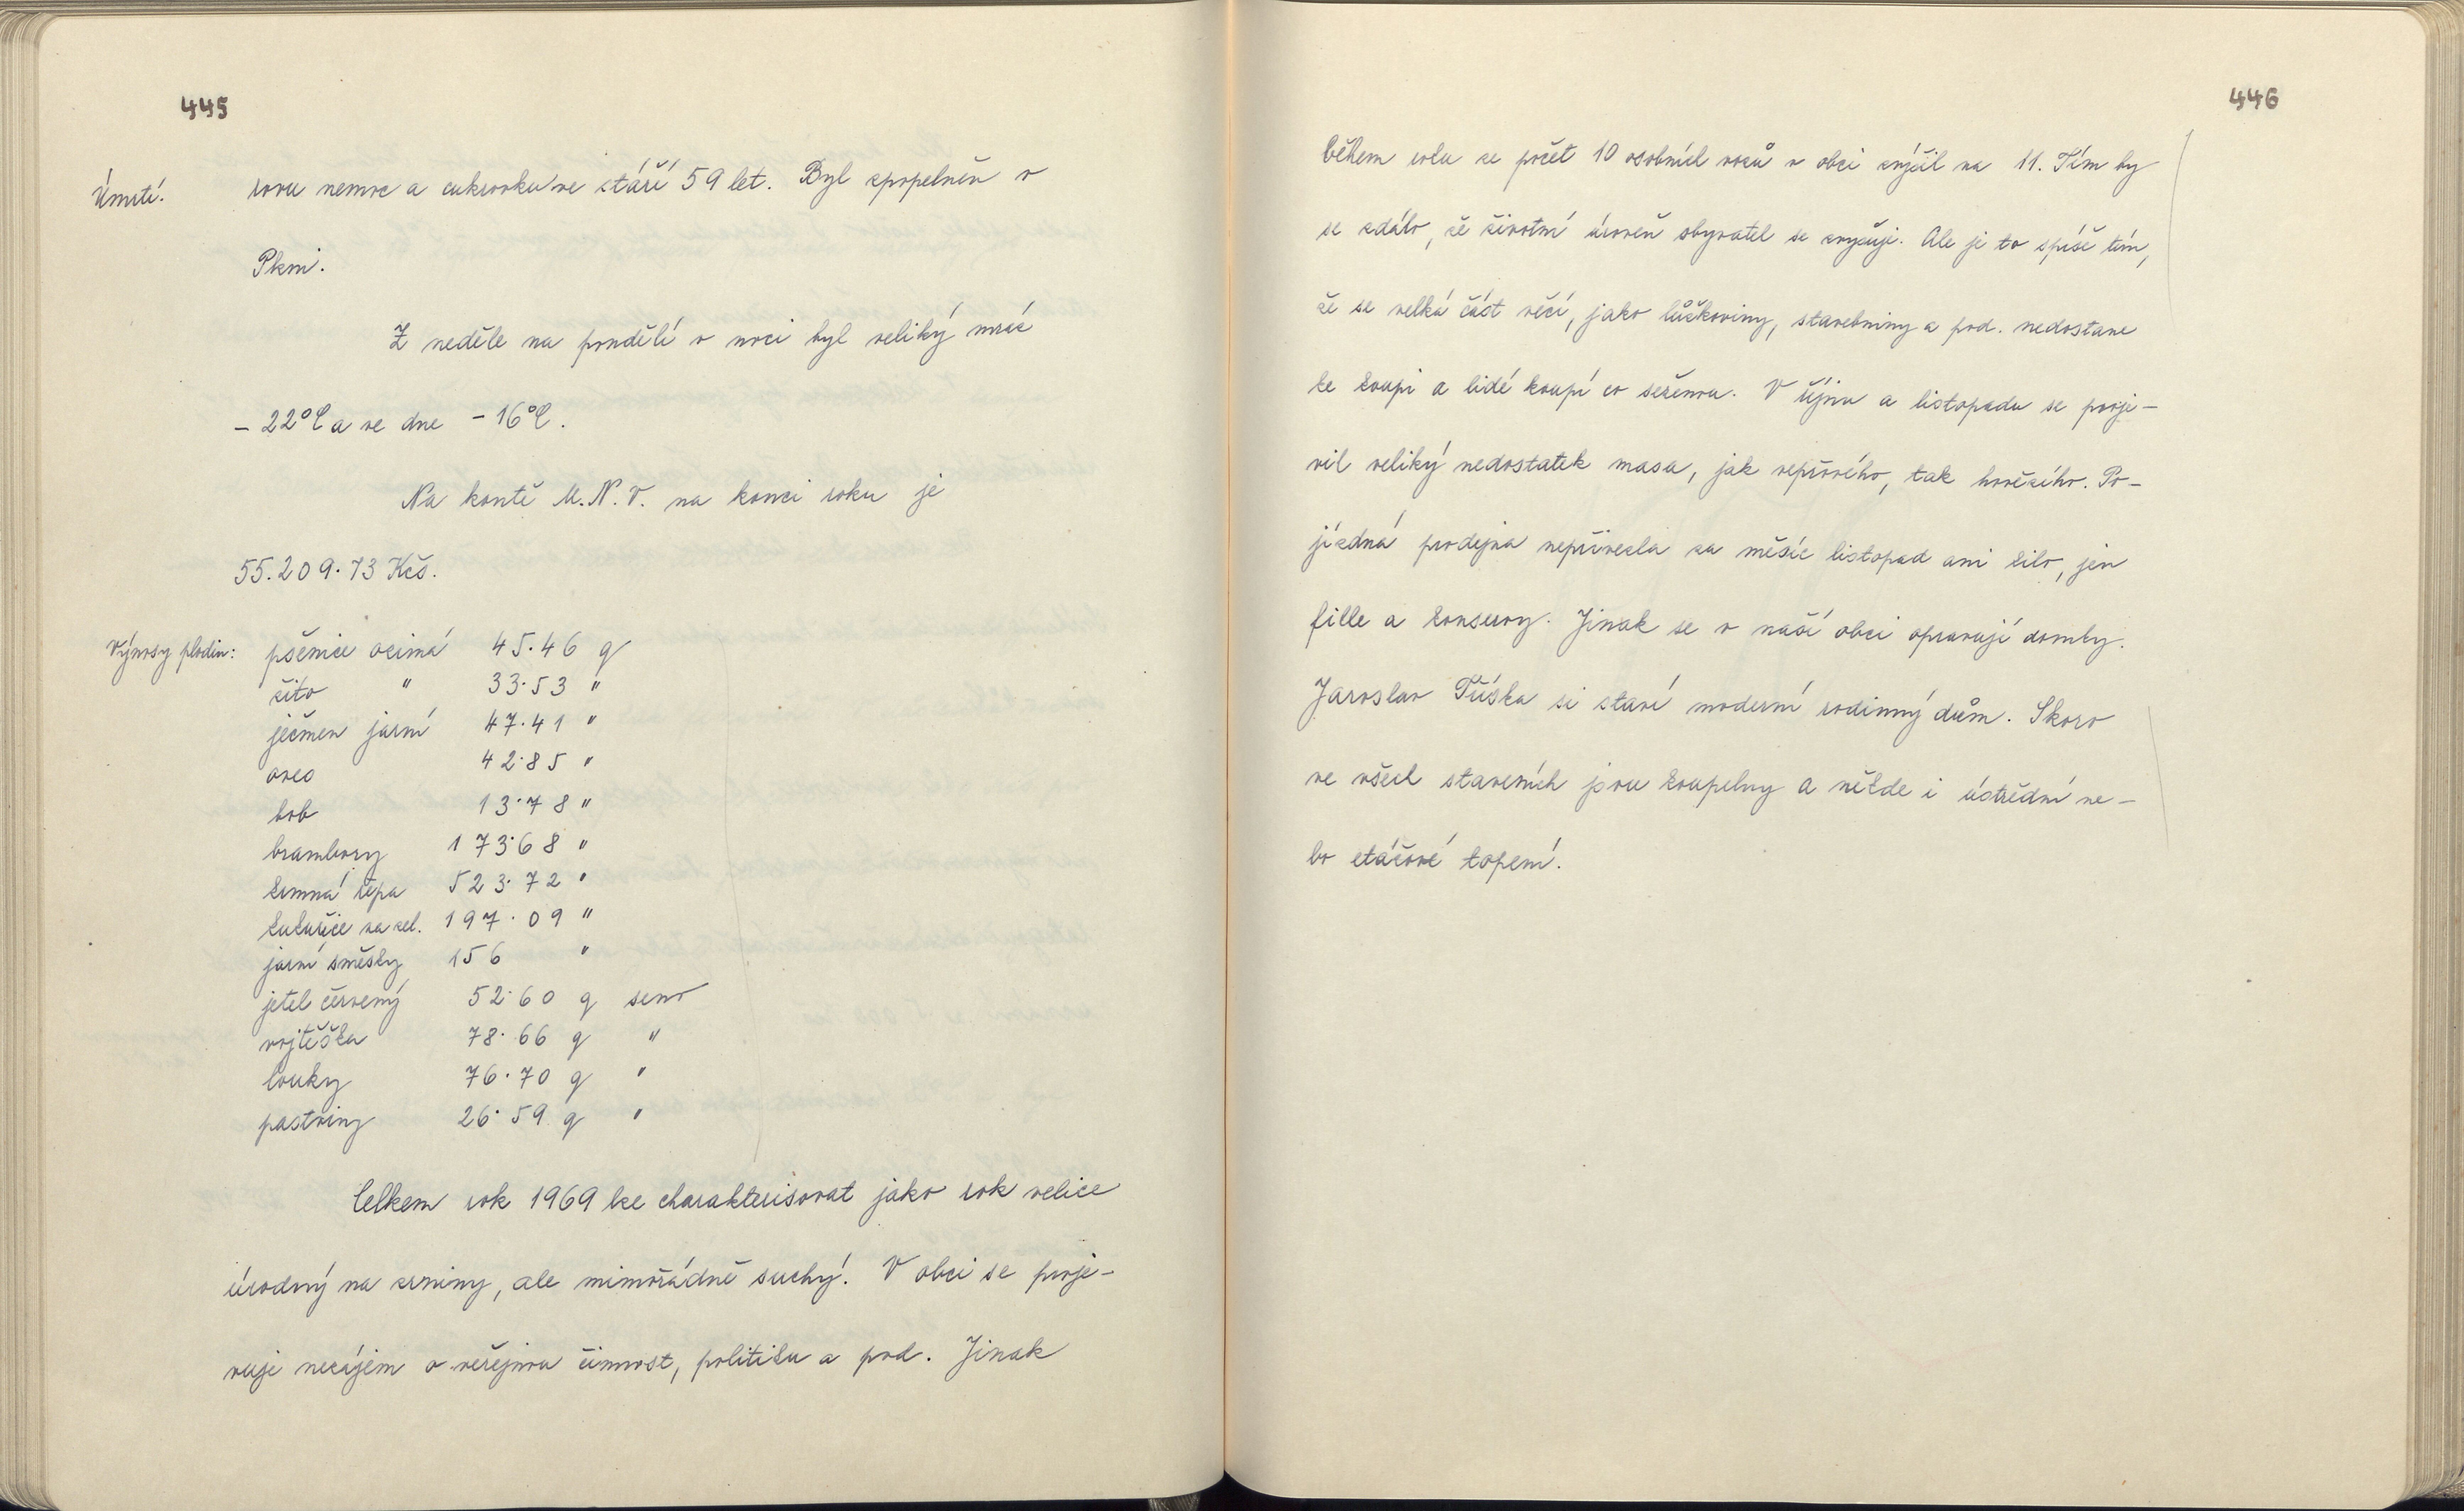 445
Úmrtí. rovu nemoc a cukrovku ve stáří 59 let. Byl zpopelněn v
Plzni.
Z neděle na pondělí v noci byl veliký mráz
- 22°C a ve dne - 16°C.
Na kontě M.N.V. na konci roku je
55.209.73 Kčs.
Výnosy plodin: pšenice ozimá 45.46 q
žito " 33.53 "
ječmen jarní 47.41 "
oves 42.85 "
bob 13.78 "
brambory 173.68 "
krmná řepa 523.72 "
kukuřice na zel. 197.09 "
jarní směsky 156 "
jetel červený 52.60 q seno
vojtěška 78.66 q "
louky 76.70 q "
pastviny 26.59 q "
Celkem rok 1969 lze charakterisovat jako rok velice
úrodný na zrniny, ale mimořádně suchý. V obci se proje-
vuje nezájem o veřejnou činnost, politiku a pod. Jinak
446
během roku se počet 10 osobních vozů v obci zvýšil na 11. Tím by
se zdálo, že životní úroveň obyvatel se zvyšuje. Ale je to spíše tím,
že se velká část věcí, jako lůžkoviny, stavebniny a pod. nedostane
ke koupi a lidé koupí co seženou. V říjnu a listopadu se proje-
vil veliký nedostatek masa, jak vepřového, tak hovězího. Po-
jízdná prodejna nepřivezla za měsíc listopad ani kilo, jen
fille a konservy. Jinak se v naší obci opravují domky.
Jaroslav Tůška si staví moderní rodinný dům. Skoro
ve všech staveních jsou koupelny a někde i ústřední ne-
bo etážové topení.